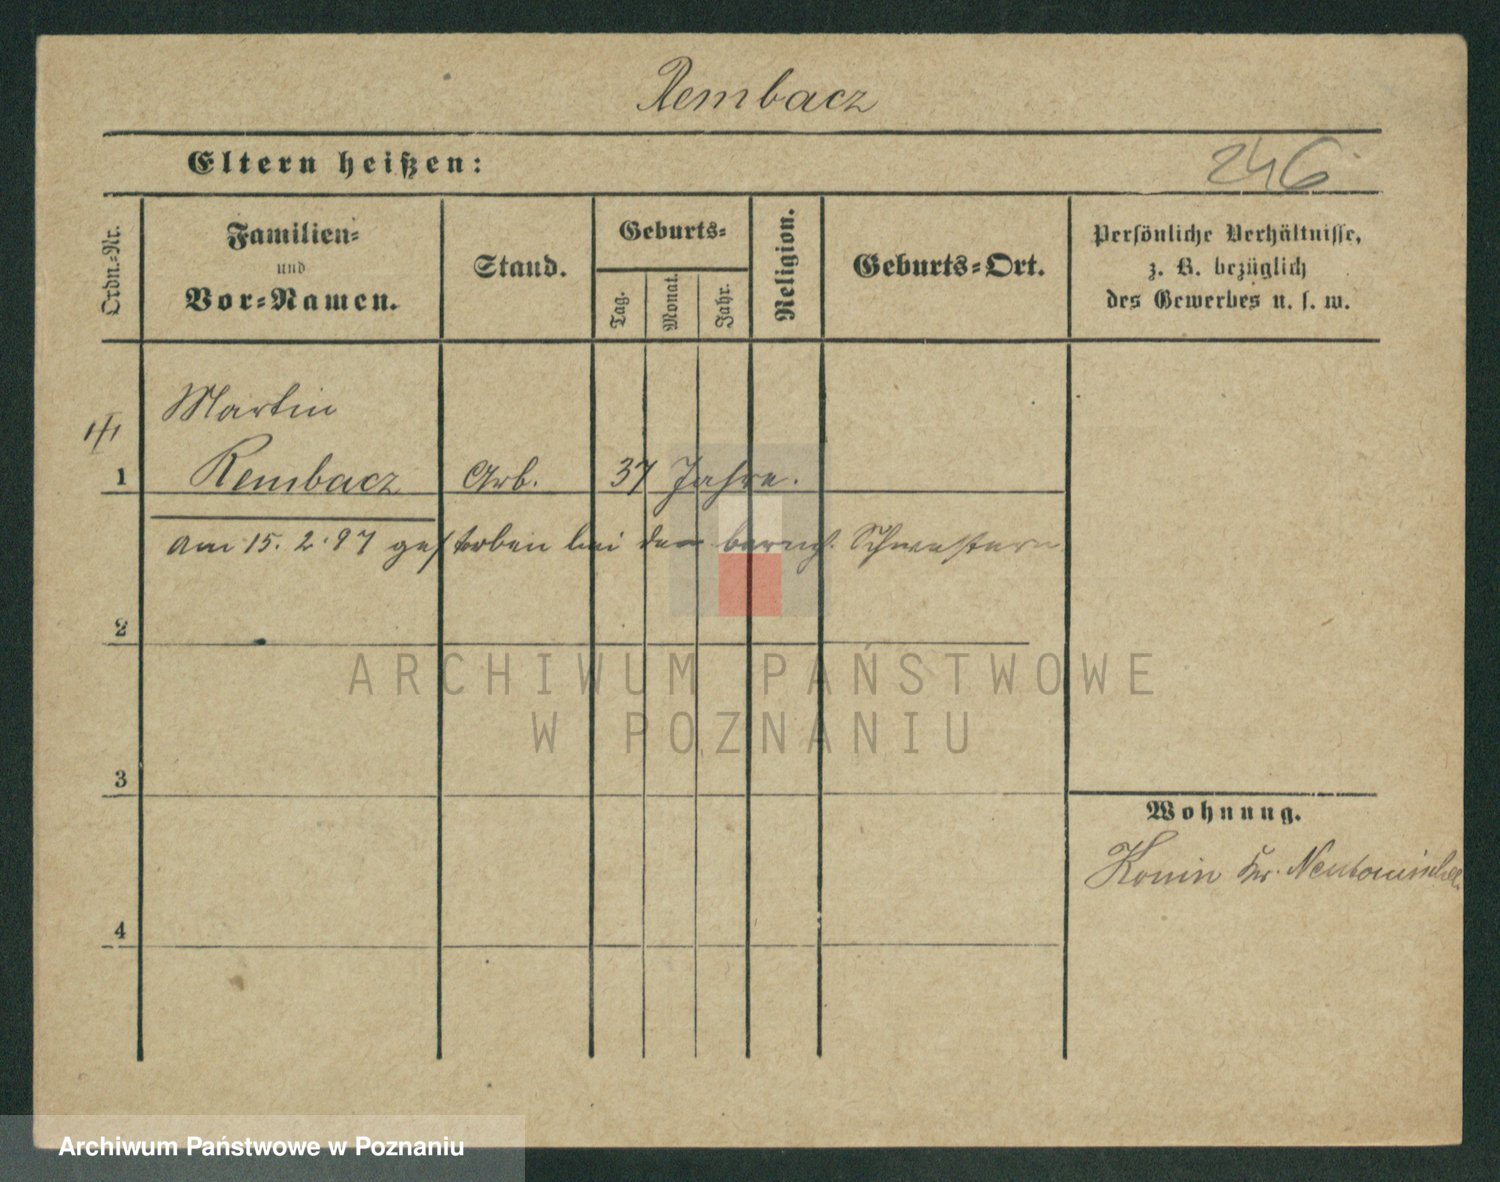 Rembacz
Eltern heißen:
246
Ordn.-Nr.
Familien-
und
Vor-Namen.
Stand.
Geburts-
Tag.
Monat.
Jahr.
Religion.
Geburts-Ort.
Persönliche Verhältnisse,
z. B. bezüglich
des Gewerbes u. s. w.
Martin
1 Rembacz Arb. 37 Jahre.
am 15. 2. 97 gestorben bei den barmh. Schwestern
2
ARCHIWUM PAŃSTWOWE
W POZNANIU
3
Wohnung.
Konin Kr. Neutomischel
4
Archiwum Państwowe w Poznaniu